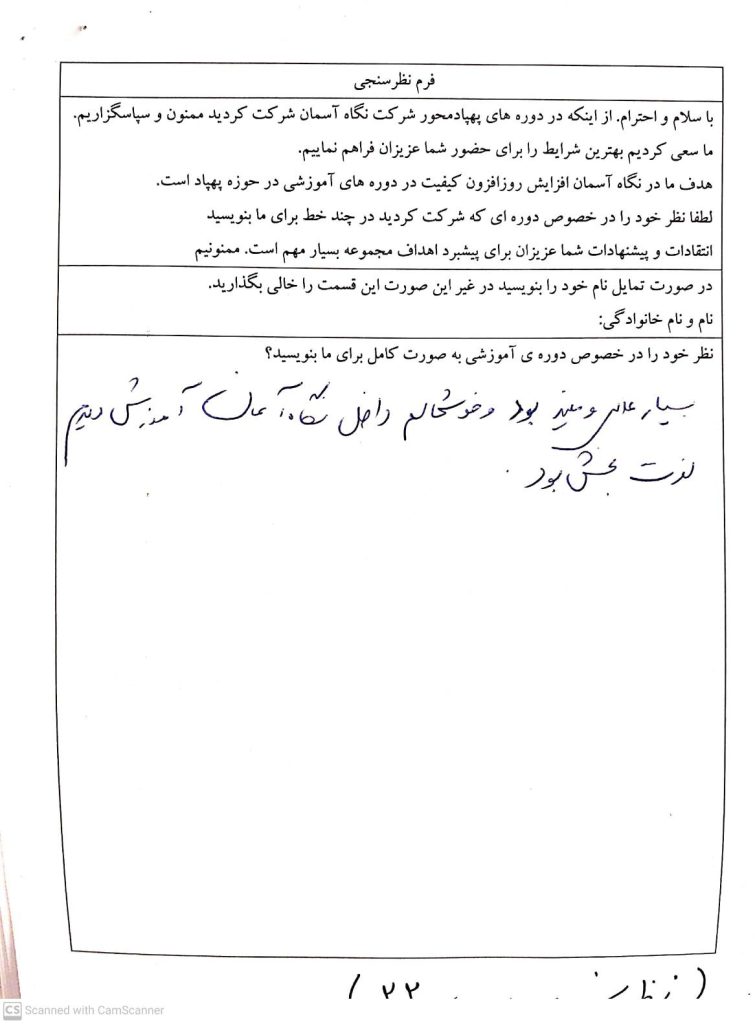 فرم نظرسنجی
با سلام و احترام. از اینکه در دوره های پهپادمحور شرکت نگاه آسمان شرکت کردید ممنون و سپاسگزاریم.
ما سعی کردیم بهترین شرایط را برای حضور شما عزیزان فراهم نماییم.
هدف ما در نگاه آسمان افزایش روزافزون کیفیت در دوره های آموزشی در حوزه پهپاد است.
لطفا نظر خود را در خصوص دوره ای که شرکت کردید در چند خط برای ما بنویسید
انتقادات و پیشنهادات شما عزیزان برای پیشبرد اهداف مجموعه بسیار مهم است. ممنونیم
در صورت تمایل نام خود را بنویسید در غیر این صورت این قسمت را خالی بگذارید.
نام و نام خانوادگی:
نظر خود را در خصوص دوره ی آموزشی به صورت کامل برای ما بنویسید؟
بسیار عالی و مفید بود و خوشحالم داخل نگاه آسمان آموزش دیدم
لذت بخش بود.
۲۲
CS Scanned with CamScanner